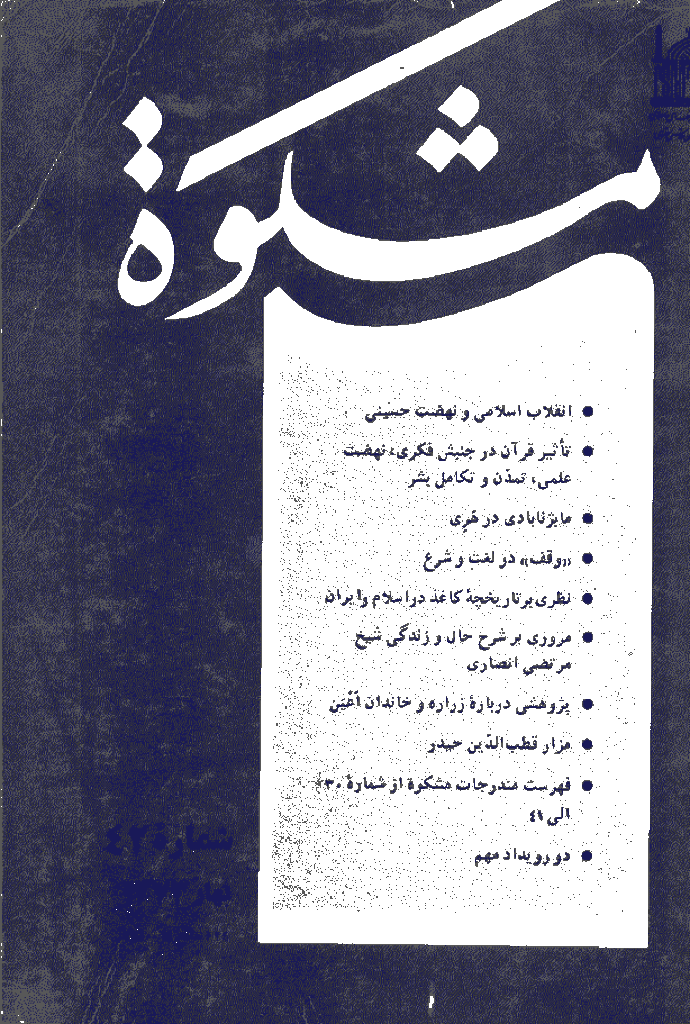 مشکوة
انقلاب اسلامی و نهضت حسینی
تأثیر قرآن در جنبش فکری، نهضت
علمی، تمدّن و تکامل بشر
مایژنابادی در هَرِی
«وقف» در لغت و شرع
نظری بر تاریخچهٔ کاغذ در اسلام و ایران
مروری بر شرح حال و زندگی شیخ
مرتضی انصاری
پژوهشی دربارهٔ زراره و خاندان اَعْیَن
مزار قطب‌الدّین حیدر
فهرست مندرجات مشکوة از شمارهٔ ۳۰
الی ۴۱
دو رویداد مهم
شمارهٔ ۴۲
بهار